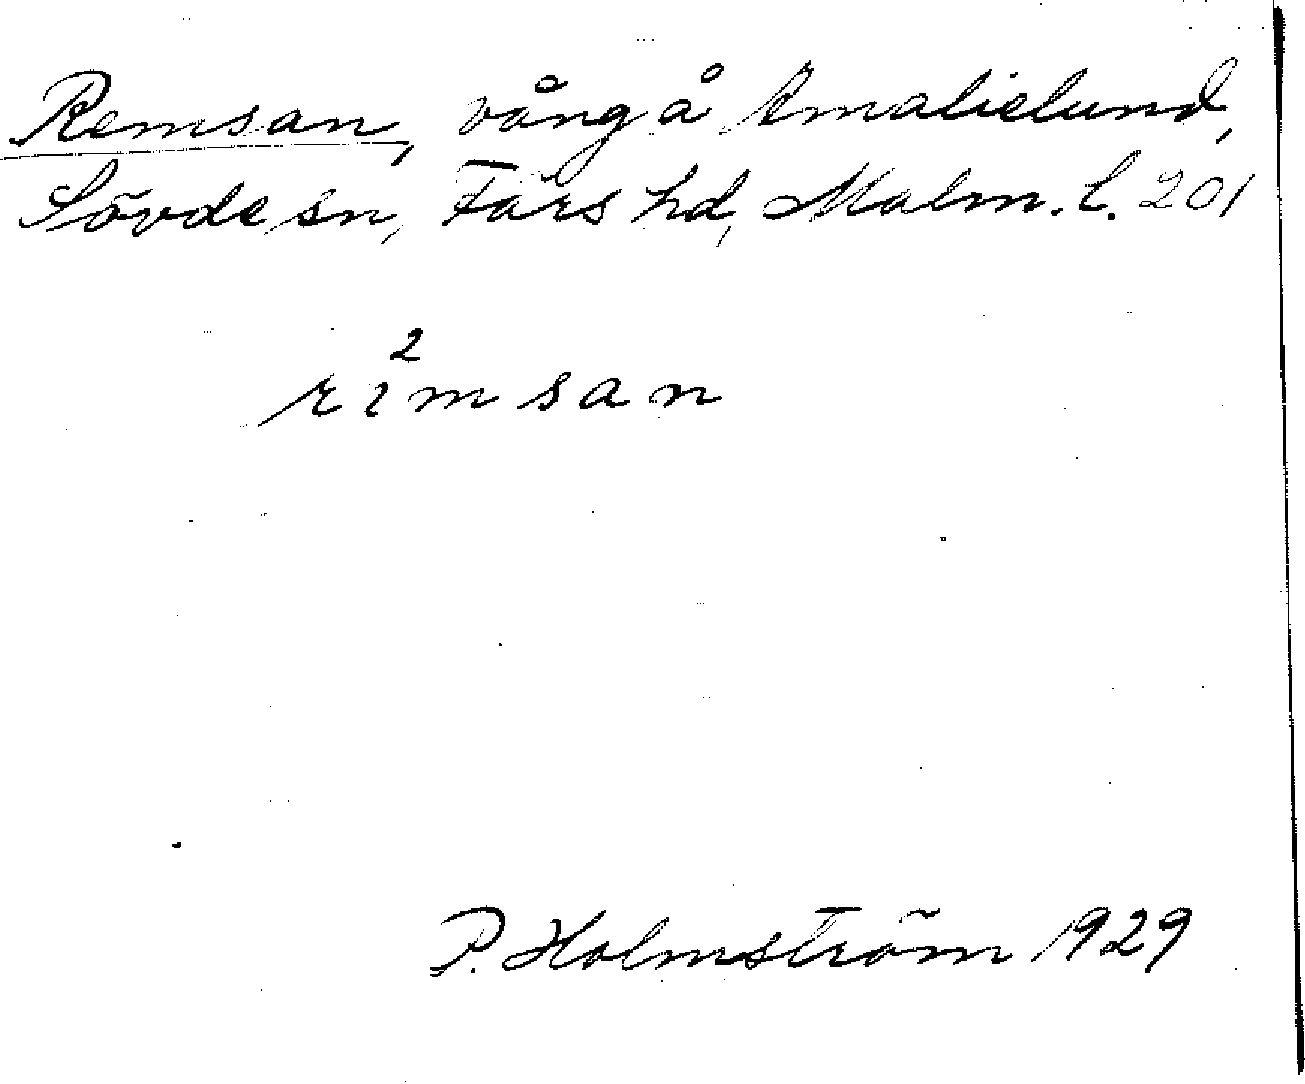 Remsan, vång å Amalielund,
Sövde sn, Färs hd, Malm. l. 201
rı²msan
P. Holmström 1929